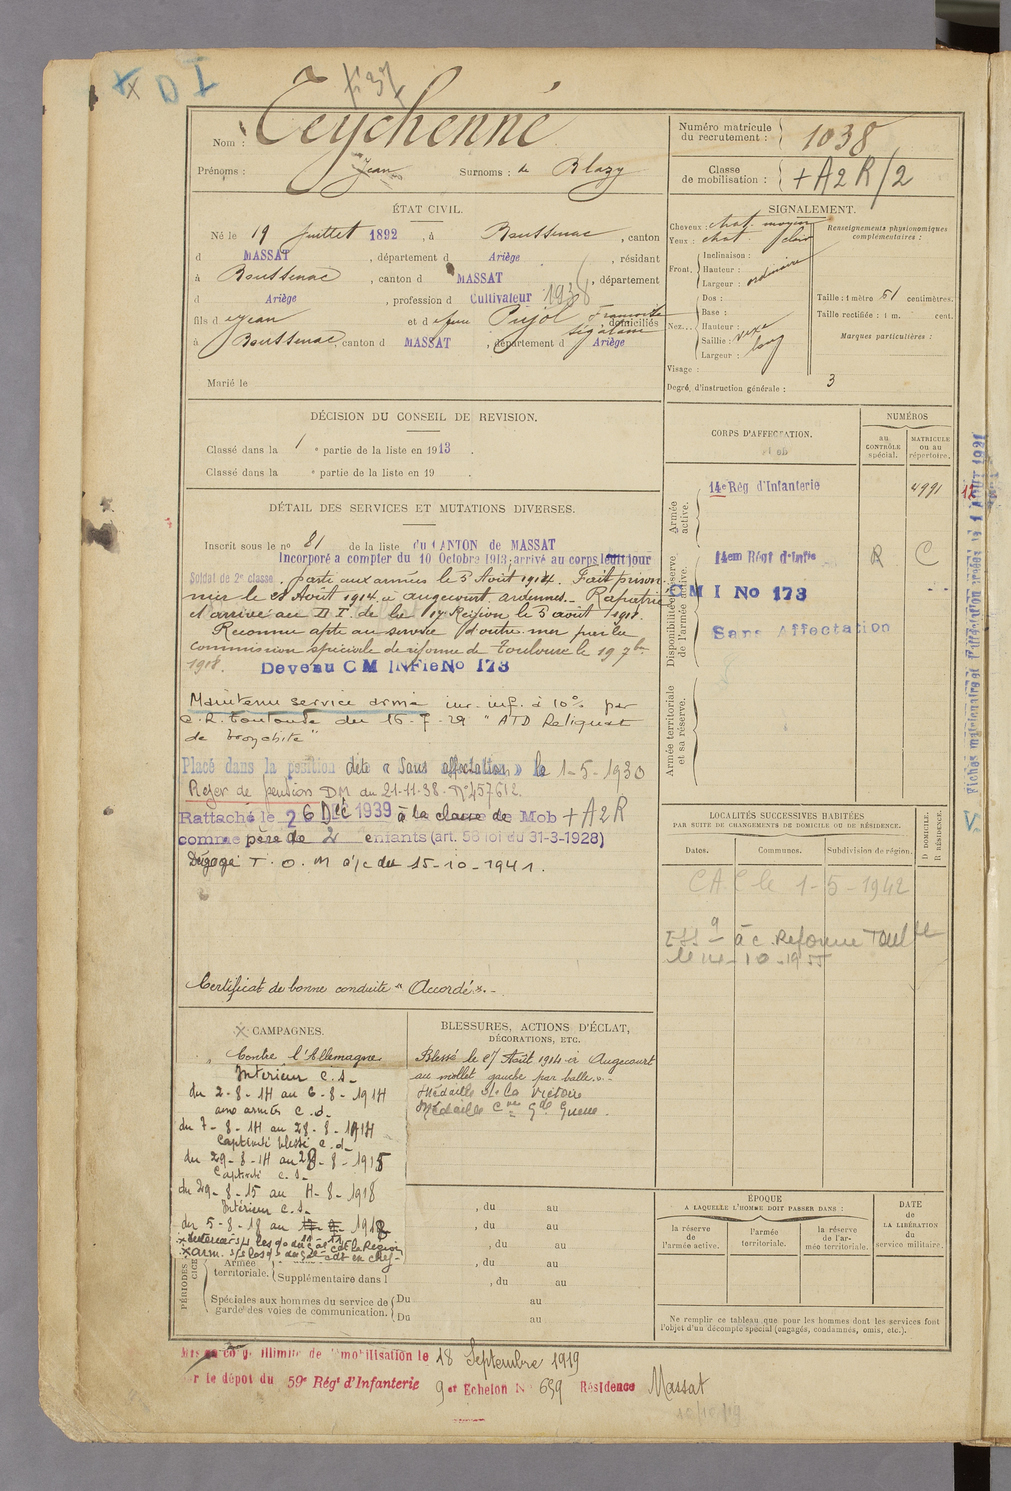 x D I
F 37
Nom : Teychenné
Prénoms : Jean Surnoms : de Blazy
Numéro matricule du recrutement : 1038
Classe de mobilisation : + A2R/2
ÉTAT CIVIL.
Né le 19 Juillet 1892, à Boussenac, canton
d MASSAT, département d Ariège, résidant
à Boussenac, canton d MASSAT, département
d Ariège, profession d Cultivateur 1938
fils d e Jean et d e feue Pujol Françoise domiciliés
à Boussenac, canton d MASSAT, département d Ariège
Marié le
SIGNALEMENT.
Cheveux : chat. moyen
Yeux : chat clair
Front. Inclinaison :
Hauteur :
Largeur : ordinaire
Nez... Dos :
Base :
Hauteur :
Saillie : vexe
Largeur : long
Visage :
Renseignements physionomiques complémentaires :
Taille : 1 mètre 61 centimètres.
Taille rectifiée : 1 m. cent.
Marques particulières :
Degré d'instruction générale : 3
DÉCISION DU CONSEIL DE REVISION.
Classé dans la 1 e partie de la liste en 1913.
Classé dans la e partie de la liste en 19 .
DÉTAIL DES SERVICES ET MUTATIONS DIVERSES.
Inscrit sous le no 81 de la liste du CANTON de MASSAT
Incorporé a compter du 10 Octobre 1913; arrivé au corps ledit jour
Soldat de 2e classe. parti aux armées le 5 Août 1914. Fait prison
nier le 28 Août 1914 à angecourt ardennes. Rapatrié
et arrivé au D.I. de la 17e Région le 5 août 1918.
Reconnu apte au service d'outre-mer par la
commission spéciale de réforme de Toulouse le 19 7bre
1918. Devenu C M INFie No 173
Maintenu service armé inv. inf. à 10% par
C.R. Toulouse du 16-7-29 "ATD Reliquat
de bronchite"
Placé dans la position dite « Sans affectation » le 1-5-1930
Rejet de pension DM du 21-11-38. No 457612.
Rattaché le 26 Déc 1939 à la classe de Mob + A2R
comme père de 2 enfants (art. 58 loi du 31-3-1928)
Dégagé T.O.M à/c du 15-10-1941.
Certificat de bonne conduite « Accordé ».-
CORPS D'AFFECTATION.
NUMÉROS
au CONTRÔLE spécial.
MATRICULE ou au répertoire.
Armée active.
14e Rég d'Infanterie 4991
Disponibilité et réserve de l'armée active.
14em Régt d'Infie R C
C M I No 173
Sans Affectation
Armée territoriale et sa réserve.
LOCALITÉS SUCCESSIVES HABITÉES
PAR SUITE DE CHANGEMENTS DE DOMICILE OU DE RÉSIDENCE.
D DOMICILE.
R RÉSIDENCE.
Dates. Communes. Subdivision de région.
CAC le 1-5-1942
à c. Reforme Toulse
le 14-10-1955
CAMPAGNES.
Contre l'Allemagne
Intérieur C.S-
du 2-8-14 au 6-8-1914
aux armées C.d-
du 7-8-14 au 28-8-1914
Captivité blessé C.d-
du 29-8-14 au 28-8-1915
Captivité C.S-
du 29-8-15 au 4-8-1918
Intérieur C.S-
du 5-8-18 au
BLESSURES, ACTIONS D'ÉCLAT,
DÉCORATIONS, ETC.
Blessé le 27 Août 1914 à Angecourt
au mollet gauche par balle.-
Médaille de la Victoire
Médaille Cve Gde Guerre.
, du au
, du au
, du au
PÉRIODES
Armée territoriale. , du au
Supplémentaire dans l , du au
Spéciales aux hommes du service de garde des voies de communication. Du au
Du au
ÉPOQUE
A LAQUELLE L'HOMME DOIT PASSER DANS :
la réserve de l'armée active.
l'armée territoriale.
la réserve de l'armée territoriale.
DATE de LA LIBÉRATION du service militaire.
Ne remplir ce tableau que pour les hommes dont les services font
l'objet d'un décompte spécial (engagés, condamnés, omis, etc.).
illimité de démobilisation le 18 Septembre 1919
le dépôt du 59e Régt d'Infanterie 9 er Echelon No 659 Résidence Massat